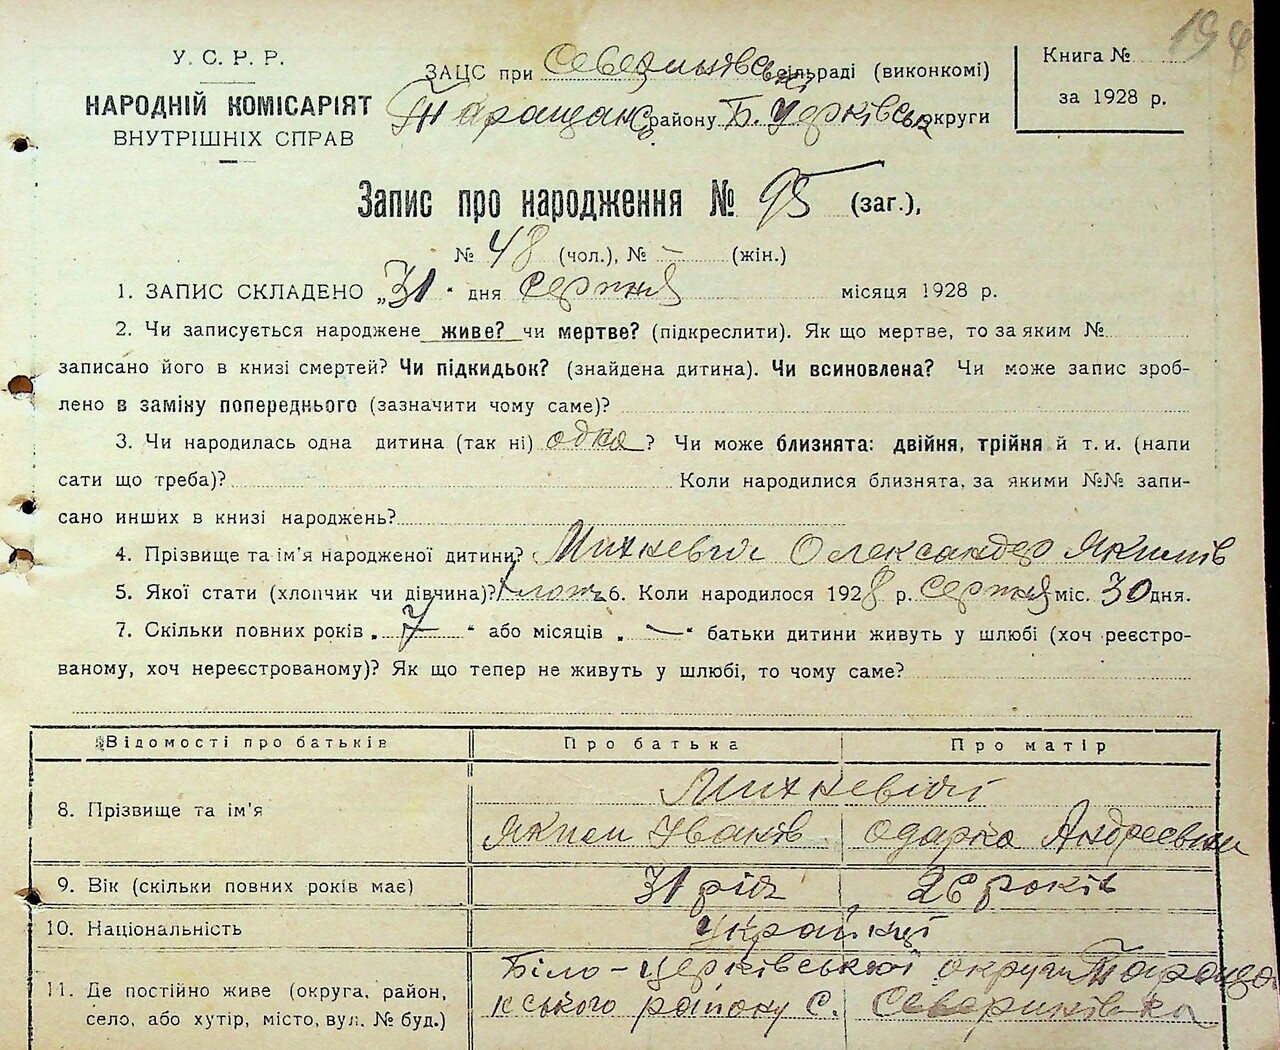 198
У. С. Р. Р.
НАРОДНІЙ КОМІСАРІЯТ
ВНУТРІШНІХ СПРАВ
ЗАЦС при Северинівській сільраді (виконкомі)
Таращанс району Б. Церківськ округи
Книга №
за 1928 р.
Запис про народження № 95 (заг.),
№ 48 (чол.), № – (жін.)
1. ЗАПИС СКЛАДЕНО „31" дня серпня місяця 1928 р.
2. Чи записується народжене живе? чи мертве? (підкреслити). Як що мертве, то за яким №
записано його в книзі смертей? Чи підкидьок? (знайдена дитина). Чи всиновлена? Чи може запис зроб-
лено в заміну попереднього (зазначити чому саме)?
3. Чи народилась одна дитина (так ні) одна? Чи може близнята: двійня, трійня й т. и. (напи
сати що треба)? Коли народилися близнята, за якими №№ запи-
сано инших в книзі народжень?
4. Прізвище та ім'я народженої дитини? Михневич Олександер Якимів
5. Якої стати (хлопчик чи дівчина)? хлопч 6. Коли народилося 1928 р. серпня міс. 30 дня.
7. Скільки повних років „7" або місяців „—" батьки дитини живуть у шлюбі (хоч реєстро-
ваному, хоч нереєстрованому)? Як що тепер не живуть у шлюбі, то чому саме?
Відомості про батьків Про батька Про матір
8. Прізвище та ім'я Михневичі
Яким Іванів Одарка Андреевна
9. Вік (скільки повних років має) 31 рік 26 років
10. Національність Українці
11. Де постійно живе (округа, район,
село, або хутір, місто, вул. № буд.)
Біло-церківської округи Тараща
нського району С. Северинівка